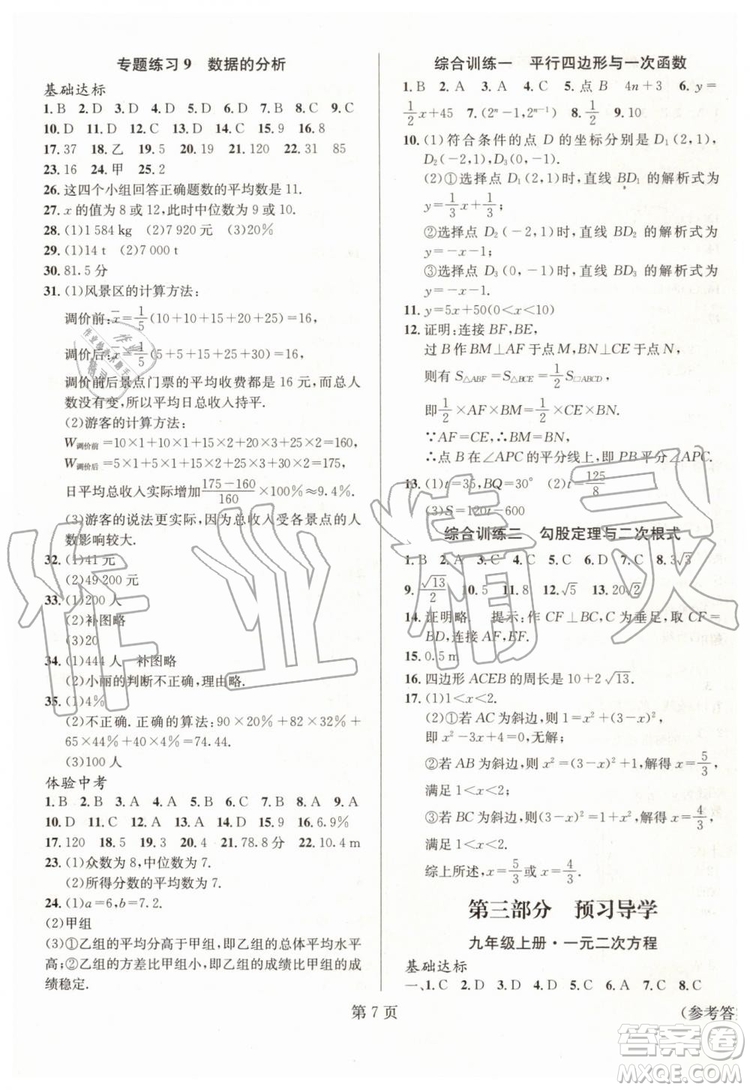 专题练习9　数据的分析
基础达标
1. B　2. D　3. D　4. D　5. B　6. D　7. B　8. C　9. C
10. D　11. D　12. D　13. B　14. A　15. 9　16. 8
17. 37　18. 乙　19. 5　20. 2.5　21. 31　22. 31　85
23. 16　24. 甲　25. 2
26. 这四个小组回答正确题数的平均数是11.
27. x的值为8或12,此时中位数为9或10.
28. (1)1 584 kg　(2)7 920元　(3)20%
29. (1)14 t　(2)7 000 t
30. 81.5分
31. (1)风景区的计算方法:
调价前:x̄=1/5(10+10+15+20+25)=16,
调价后:x̄=1/5(5+5+15+25+30)=16,
调价前后景点门票的平均收费都是16元,而总人
数基本不变,因此平均日总收入持平.
(2)游客的计算方法:
W调价前=10×1+10×1+15×2+20×3+25×2=160,
W调价后=5×1+5×1+15×2+25×3+30×2=175,
日平均总收入实际增加(175-160)/160×100%≈9.4%.
(3)游客的说法更实际,因为总收入与各景点的人
数影响较大.
32. (1)41元
(2)49 200元
33. (1)200人
(2)补图略
(3)20
34. (1)444人　补图略
(2)小丽的判断不正确.理由略.
35. (1)4%
(2)不正确.正确的算法:90×20%+82×32%+
65×44%+40×4%
(3)100人
体验中考
1. B　2. B　3. B　4. A　5. D　6. C　7. C　8. A　9. D
10. C　11. D　12. B　13. 9　14. 8　15. 90　16. 6.9%
17. 120　18. 135　19. 84分　20. 4.4　21. 7　22. 10.4 m
23. (1)众数为7,中位数为7.
(2)所得分数的平均数为7.
24. (1)a=6,b=7.2.
(2)甲组
(3)①乙组的平均分高于甲组,即乙组的总体平均水平
高;②乙组的方差比甲组小,即乙组的成绩比甲组的成
绩稳定.
综合训练一　平行四边形与一次函数
1. B　2. A　3. C　4. A　5. 点B　4n-3　6. y=
1/2x+45　7. (2ⁿ-1,2ⁿ⁻¹)　8. 1/2　9. 10
10. (1)符合条件的点D的坐标分别是D₁(2,1),
D₂(-2,1),D₃(0,-1).
(2)①选择点D₁(2,1)时,直线BD₁的解析式为
y=1/3x+1/3;
②选择点D₂(-2,1)时,直线BD₂的解析式为
y=-x-1;
③选择点D₃(0,-1)时,直线BD₃的解析式为
y=-x-1.
11. y=5x+50(0<x<10)
12. 证明:连接BF,BE,
过B作BM⊥AF于M,BN⊥EC于N.
则有S△ABF=S△BCE=1/2S□ABCD.
即1/2×AF×BM=1/2×CE×BN.
∵AF=CE,∴BM=BN.
∴点B在∠APC的平分线上,即PB平分∠APC.
13. (1)t=35,BQ=30°　(2)t=125/8
(3)S=120t-600
综合训练二　勾股定理与二次根式
1. C　2. B　3. A　4. C　5. C　6. D　7. C　8. 3√3
9. √13/2　10. 4　11. 3/2　12. √5　13. 20√2
14. 证明略　提示:作CF⊥BC,C为垂足,反向取
CF=BD,连接AF,EF.
15. 0.5 m
16. 四边形ACEB的周长是10+2√13.
17. (1)1<x<2.
(2)①若AC为斜边,则1=x²+(3-x)²,
即x²-3x+4=0,无解.
②若AB为斜边,则x²=(3-x)²+1,解得x=5/3,
满足1<x<2.
③若BC为斜边,则(3-x)²=1+x²,解得x=4/3,
满足1<x<2.
综上所述,x=5/3或x=4/3.
第三部分　预习导学
九年级上册·一元二次方程
基础达标
一、1. C　2. D　3. C　4. B　5. D　6. A　7. D　8. C
第7页
(参考答
作业精灵
答案圈
MXQE.COM